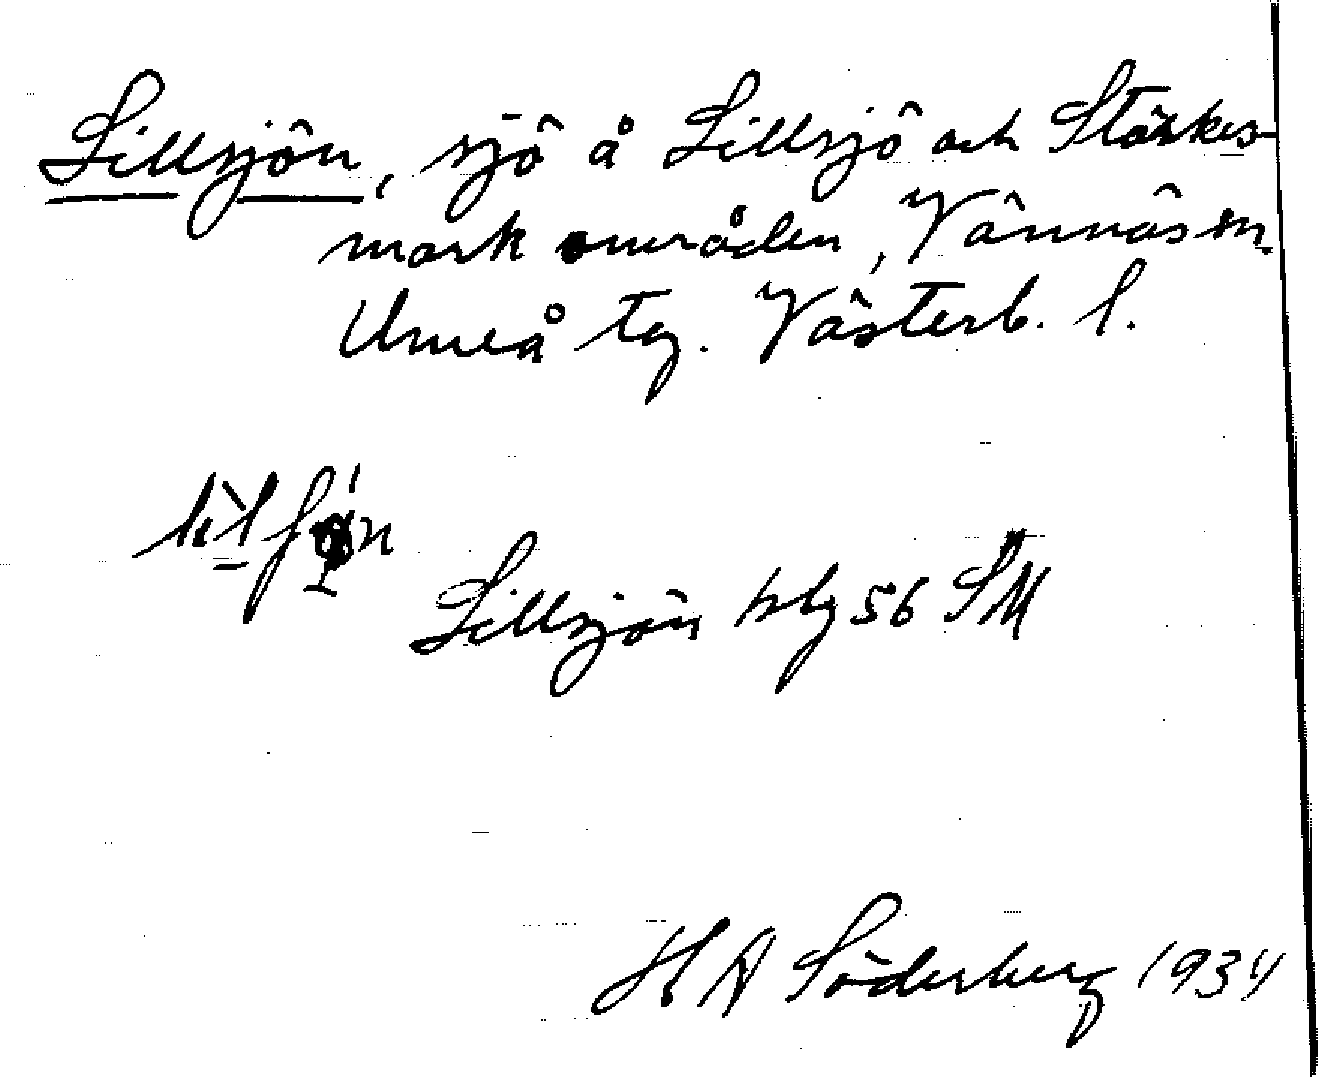 Lillsjön, sjö å Lillsjö och Stärkes-
mark områden, Vännäs sn.
Umeå tg. Västerb. l.
Lillsjön blg 56 SM
H A Söderberg 1934